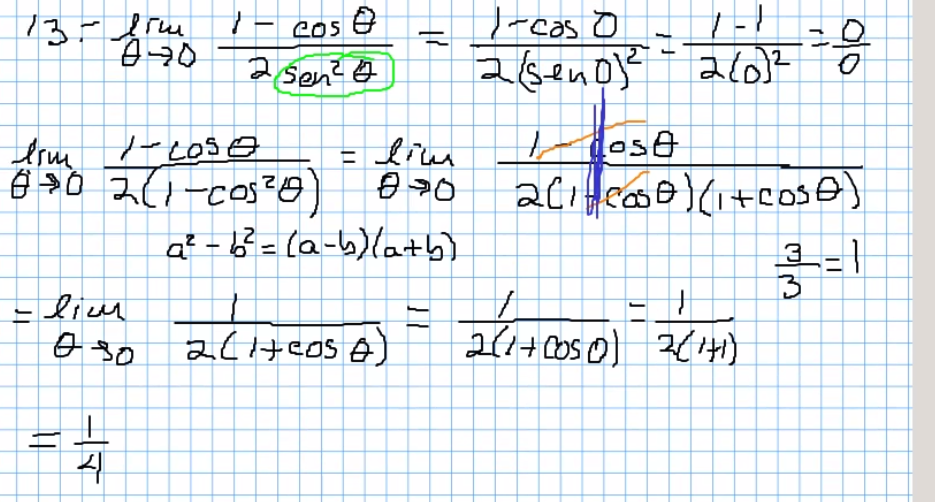 13.- lim θ→0 (1 - cos θ)/(2 sen² θ) = (1-cos 0)/(2(sen 0)²) = (1-1)/(2(0)²) = 0/0
lim θ→0 (1-cos θ)/(2(1-cos²θ)) = lim θ→0 (1-cosθ)/(2(1-cosθ)(1+cosθ))
a² - b² = (a-b)(a+b)
3/3 = 1
= lim θ→0 1/(2(1+cos θ)) = 1/(2(1+cos 0)) = 1/(2(1+1))
= 1/4